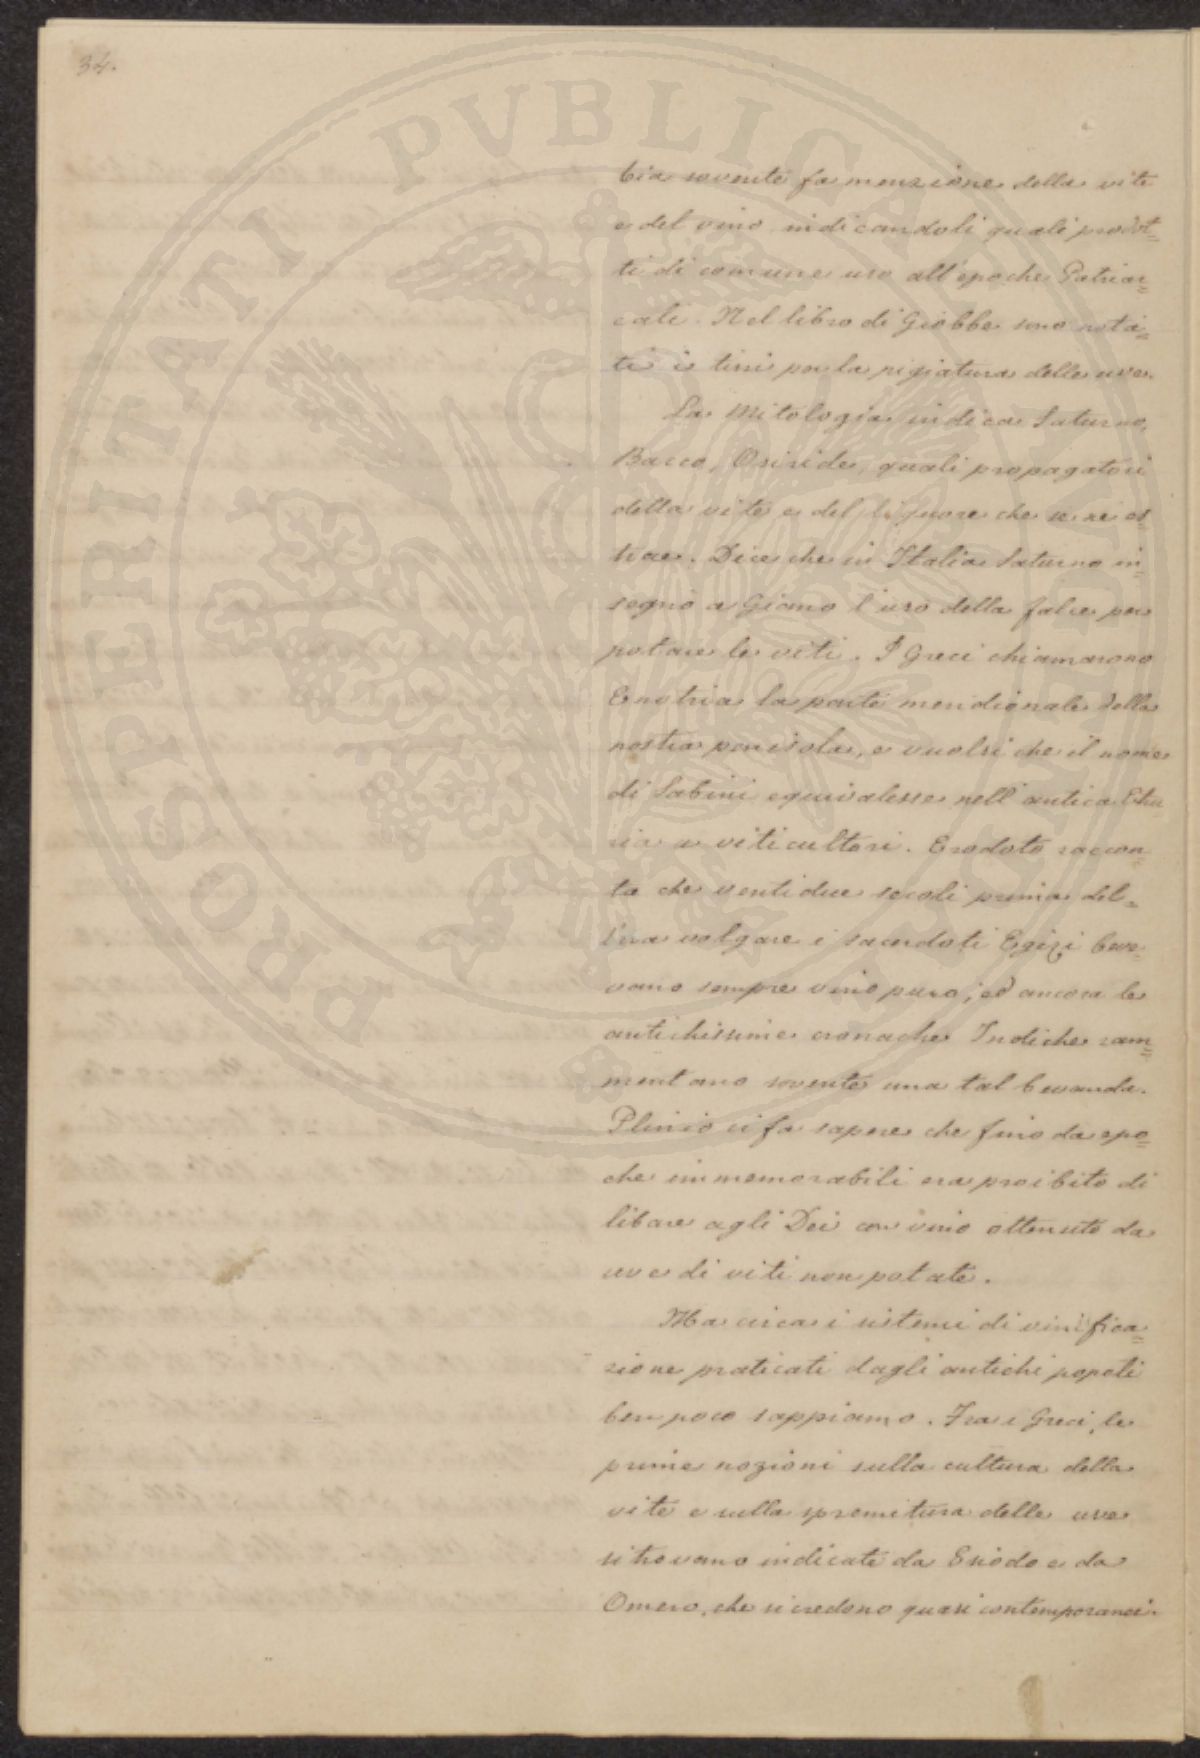 34.
PROSPERITATI PVBLICAE
bia sovente fa menzione della vite
e del vino indicandoli quali prodot=
ti di comune uso all'epoche Patriar=
cali. Nel libro di Giobbe sono nota=
ti i tini per la pigiatura delle uve.
La Mitologia indica Saturno,
Bacco, Osiride, quali propagatori
della vite e del liquore che se ne es=
trae. Dice che in Italia Saturno in=
segnò a Giano l'uso della falce per
potare le viti. I Greci chiamarono
Enotria la parte meridionale della
nostra penisola, e vuolsi che il nome
di Sabini equivalesse nell'antica Etru=
ria a viticultori. Erodoto raccon=
ta che ventidue secoli prima del=
l'era volgare i sacerdoti Egizi beve=
vano sempre vino puro; ed ancora le
antichissime cronache Indiche ram=
mentano sovente una tal bevanda.
Plinio ci fa sapere che fino da epo=
che immemorabili era proibito di
libare agli Dei con vino ottenuto da
uve di viti non potate.
Ma circa i sistemi di vinifica=
zione praticati dagli antichi popoli
ben poco sappiamo. Fra i Greci, le
prime nozioni sulla cultura della
vite e sulla spremitura delle uve
si trovano indicate da Esiodo e da
Omero, che si credono quasi contemporanei.